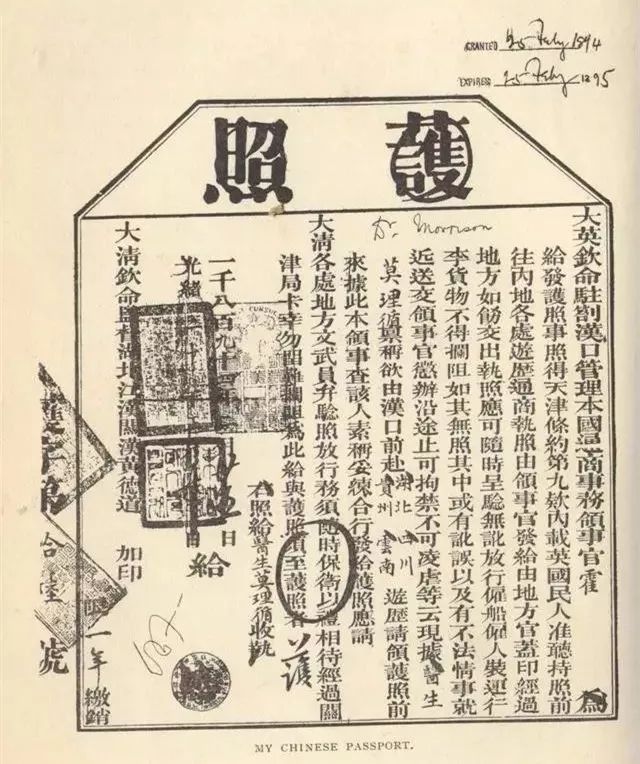 GRANTED 25 Feby 1894
EXPIRES 25 Feby 1895
護照
Dr. Morrison
大英欽命駐劄漢口管理本國通商事務領事官霍 為
給發護照事照得天津條約第九欵內載英國民人准聽持照前
往內地各處遊歷通商執照由領事官發給由地方官蓋印經過
地方如飭交出執照應可隨時呈驗無訛放行僱船僱人裝運行
李貨物不得攔阻如其無照其中或有訛誤以及有不法情事就
近送交領事官懲辦沿途止可拘禁不可凌虐等云現據醫生
莫理循稟稱欲由漢口前赴湖北四川貴州雲南遊歷請領護照前
來據此本領事查該人素稱妥練合行發給護照應請
大清各處地方文武員弁驗照放行務須隨時保衛以禮相待經過關
津局卡幸勿留難攔阻為此給與護照須至護照者 護
右照給醫生莫理循收執
一千八百九十四年 日 給
光緒
大清欽命監督湖北江漢關漢黃德道 加印
限一年繳銷
護字第 號
MY CHINESE PASSPORT.